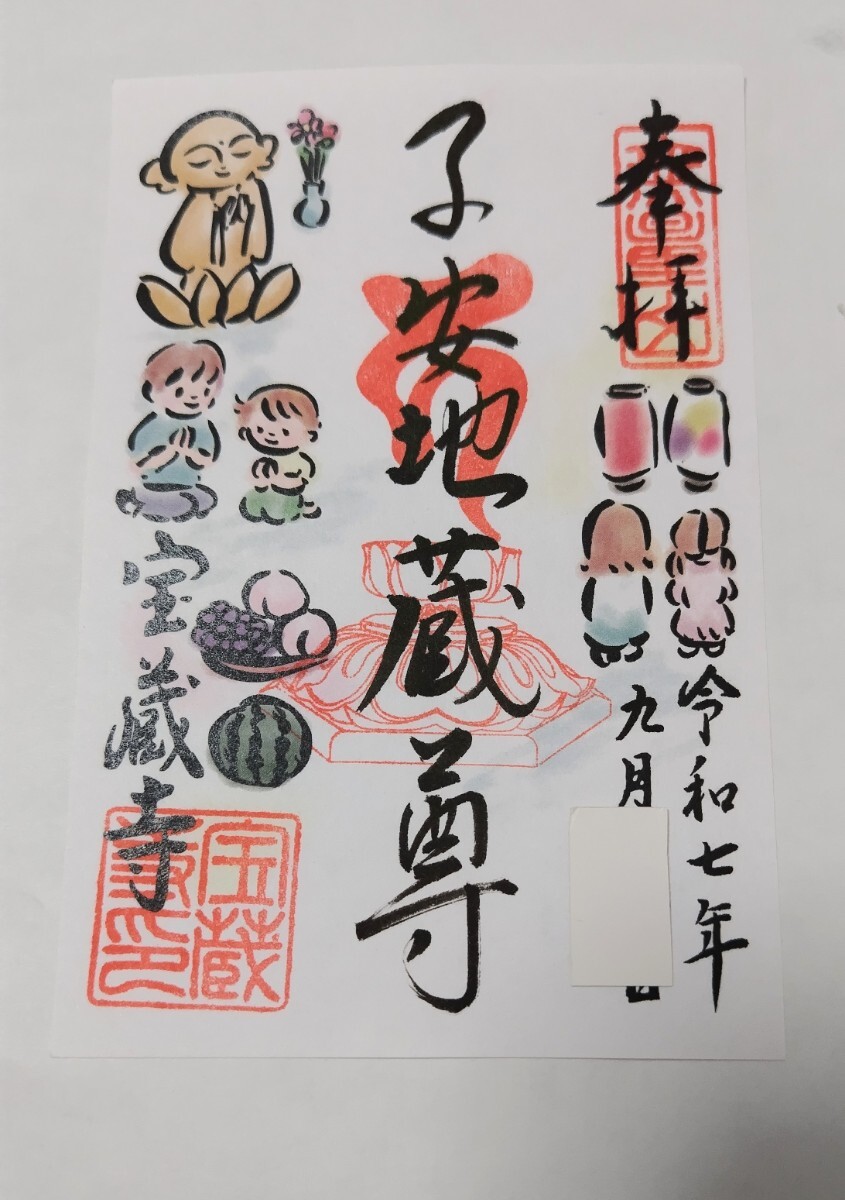 奉拝
令和七年
九月
子安地蔵尊
宝蔵寺
宝蔵
寺印